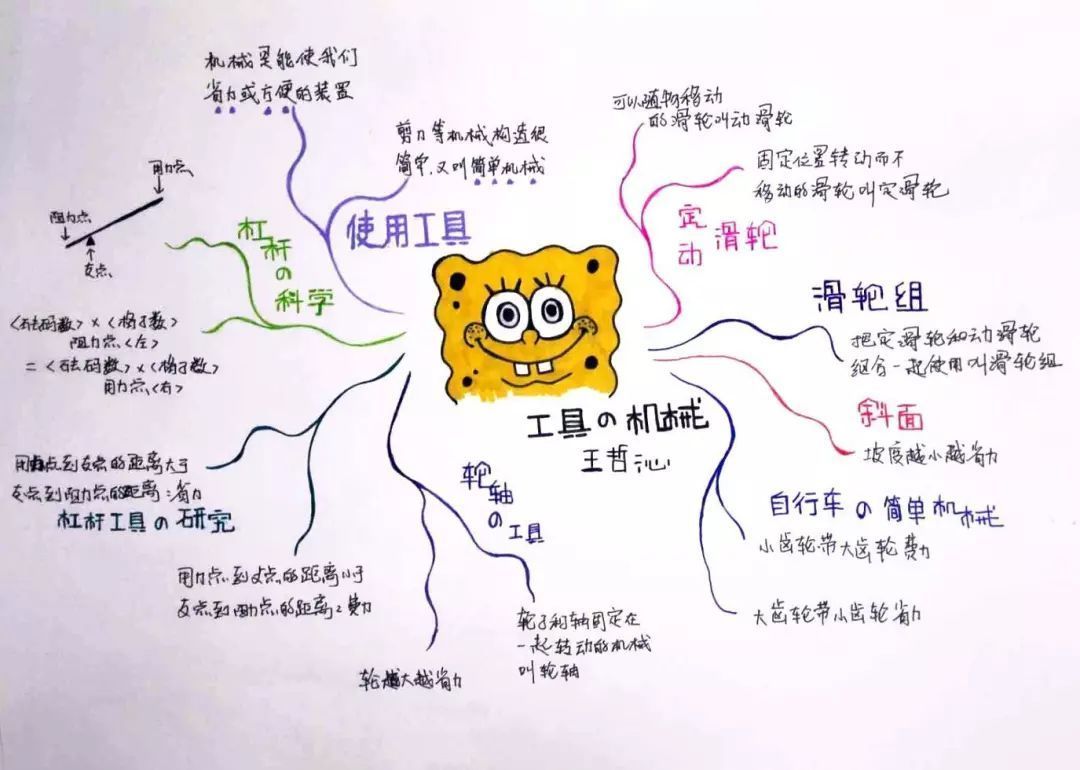 机械是能使我们
省力或方便的装置
剪刀等机械构造很
简单,又叫简单机械
使用工具
用力点
阻力点
支点
杠杆の科学
<砝码数>×<格子数>
阻力点<左>
=<砝码数>×<格子数>
用力点<右>
用力点到支点的距离大于
支点到阻力点的距离:省力
杠杆工具の研究
用力点到支点的距离小于
支点到阻力点的距离:费力
轮轴の工具
轮越大越省力
轮子和轴固定在
一起转动的机械
叫轮轴
工具の机械
王哲沁
可以随物移动
的滑轮叫动滑轮
固定位置转动而不
移动的滑轮叫定滑轮
定动滑轮
滑轮组
把定滑轮和动滑轮
组合一起使用叫滑轮组
斜面
坡度越小越省力
自行车の简单机械
小齿轮带大齿轮费力
大齿轮带小齿轮省力